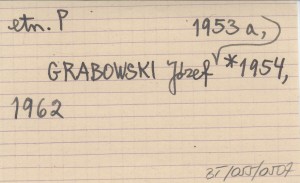 etn. P
1953 a,
GRABOWSKI Józef *1954,
1962
BI/055/0507